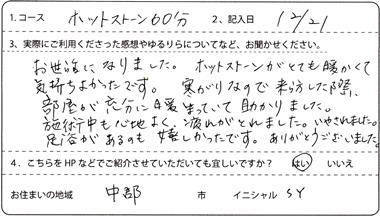 1.コース ホットストーン60分 2、記入日 12/21
3、実際にご利用くださった感想やゆるりらについてなど、お聞かせください。
お世話になりました。ホットストーンがとても暖かくて
気持ちよかったです。寒がりなので来られた際、
部屋が充分に暖まっていて助かりました。
施術中も心地よく、疲れがとれました。いやされました。
足浴があるのも嬉しかったです。ありがとうございました。
4．こちらをHPなどでご紹介させていただいても宜しいですか？ はい いいえ
お住まいの地域 中部 市 イニシャル SY